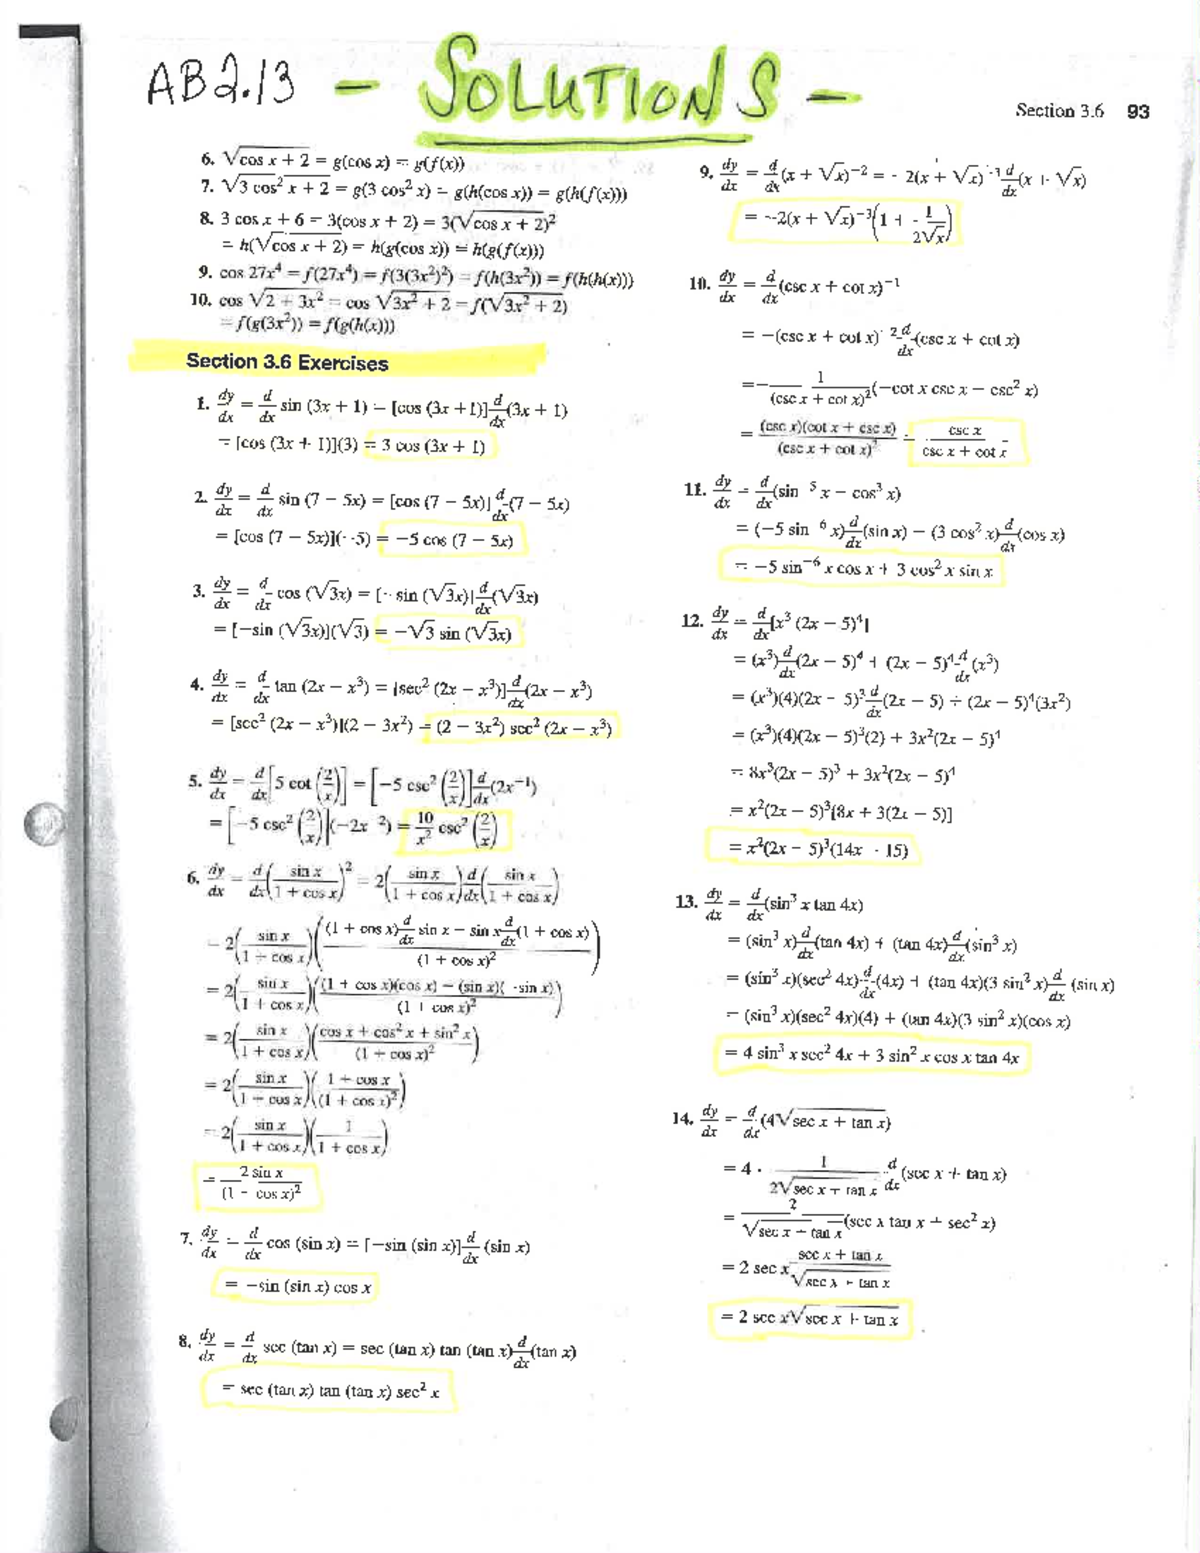 AB2.13 - SOLUTIONS -
Section 3.6 93
6. √cos x + 2 = g(cos x) = g(f(x))
7. √3 cos² x + 2 = g(3 cos² x) = g(h(cos x)) = g(h(f(x)))
8. 3 cos x + 6 = 3(cos x + 2) = 3(√cos x + 2)²
= h(√cos x + 2) = h(g(cos x)) = h(g(f(x)))
9. cos 27x⁴ = f(27x⁴) = f(3(3x²)²) = f(h(3x²)) = f(h(h(x)))
10. cos √2 + 3x² = cos √3x² + 2 = f(√3x² + 2)
= f(g(3x²)) = f(g(h(x)))
Section 3.6 Exercises
1. dy/dx = d/dx sin (3x + 1) = [cos (3x + 1)] d/dx (3x + 1)
= [cos (3x + 1)](3) = 3 cos (3x + 1)
2. dy/dx = d/dx sin (7 − 5x) = [cos (7 − 5x)] d/dx (7 − 5x)
= [cos (7 − 5x)](−5) = −5 cos (7 − 5x)
3. dy/dx = d/dx cos (√3x) = [− sin (√3x)] d/dx (√3x)
= [−sin (√3x)](√3) = −√3 sin (√3x)
4. dy/dx = d/dx tan (2x − x³) = [sec² (2x − x³)] d/dx (2x − x³)
= [sec² (2x − x³)](2 − 3x²) = (2 − 3x²) sec² (2x − x³)
5. dy/dx = d/dx [5 cot (2/x)] = [−5 csc² (2/x)] d/dx (2x⁻¹)
= [−5 csc² (2/x)](−2x ²) = 10/x² csc² (2/x)
6. dy/dx = d/dx (sin x/1 + cos x)² = 2(sin x/1 + cos x) d/dx (sin x/1 + cos x)
= 2(sin x/1 + cos x)((1 + cos x) d/dx sin x − sin x d/dx (1 + cos x)/(1 + cos x)²)
= 2(sin x/1 + cos x)((1 + cos x)(cos x) − (sin x)(−sin x)/(1 + cos x)²)
= 2(sin x/1 + cos x)(cos x + cos² x + sin² x/(1 + cos x)²)
= 2(sin x/1 + cos x)(1 + cos x/(1 + cos x)²)
= 2(sin x/1 + cos x)(1/1 + cos x)
= 2 sin x/(1 + cos x)²
7. dy/dx = d/dx cos (sin x) = [−sin (sin x)] d/dx (sin x)
= −sin (sin x) cos x
8. dy/dx = d/dx sec (tan x) = sec (tan x) tan (tan x) d/dx (tan x)
= sec (tan x) tan (tan x) sec² x
9. dy/dx = d/dx (x + √x)⁻² = − 2(x + √x)⁻³ d/dx (x + √x)
= −2(x + √x)⁻³(1 + 1/2√x)
10. dy/dx = d/dx (csc x + cot x)⁻¹
= −(csc x + cot x)⁻² d/dx (csc x + cot x)
= − 1/(csc x + cot x)² (−cot x csc x − csc² x)
= (csc x)(cot x + csc x)/(csc x + cot x)² = csc x/csc x + cot x
11. dy/dx = d/dx (sin ⁵ x − cos³ x)
= (−5 sin ⁶ x) d/dx (sin x) − (3 cos² x) d/dx (cos x)
= −5 sin⁻⁶ x cos x + 3 cos² x sin x
12. dy/dx = d/dx [x³ (2x − 5)⁴]
= (x³) d/dx (2x − 5)⁴ + (2x − 5)⁴ d/dx (x³)
= (x³)(4)(2x − 5)³ d/dx (2x − 5) + (2x − 5)⁴(3x²)
= (x³)(4)(2x − 5)³(2) + 3x²(2x − 5)⁴
= 8x³(2x − 5)³ + 3x²(2x − 5)⁴
= x²(2x − 5)³[8x + 3(2x − 5)]
= x²(2x − 5)³(14x − 15)
13. dy/dx = d/dx (sin³ x tan 4x)
= (sin³ x) d/dx (tan 4x) + (tan 4x) d/dx (sin³ x)
= (sin³ x)(sec² 4x) d/dx (4x) + (tan 4x)(3 sin² x) d/dx (sin x)
= (sin³ x)(sec² 4x)(4) + (tan 4x)(3 sin² x)(cos x)
= 4 sin³ x sec² 4x + 3 sin² x cos x tan 4x
14. dy/dx = d/dx (4√sec x + tan x)
= 4 · 1/2√sec x + tan x d/dx (sec x + tan x)
= 2/√sec x + tan x (sec x tan x + sec² x)
= 2 sec x sec x + tan x/√sec x + tan x
= 2 sec x√sec x + tan x